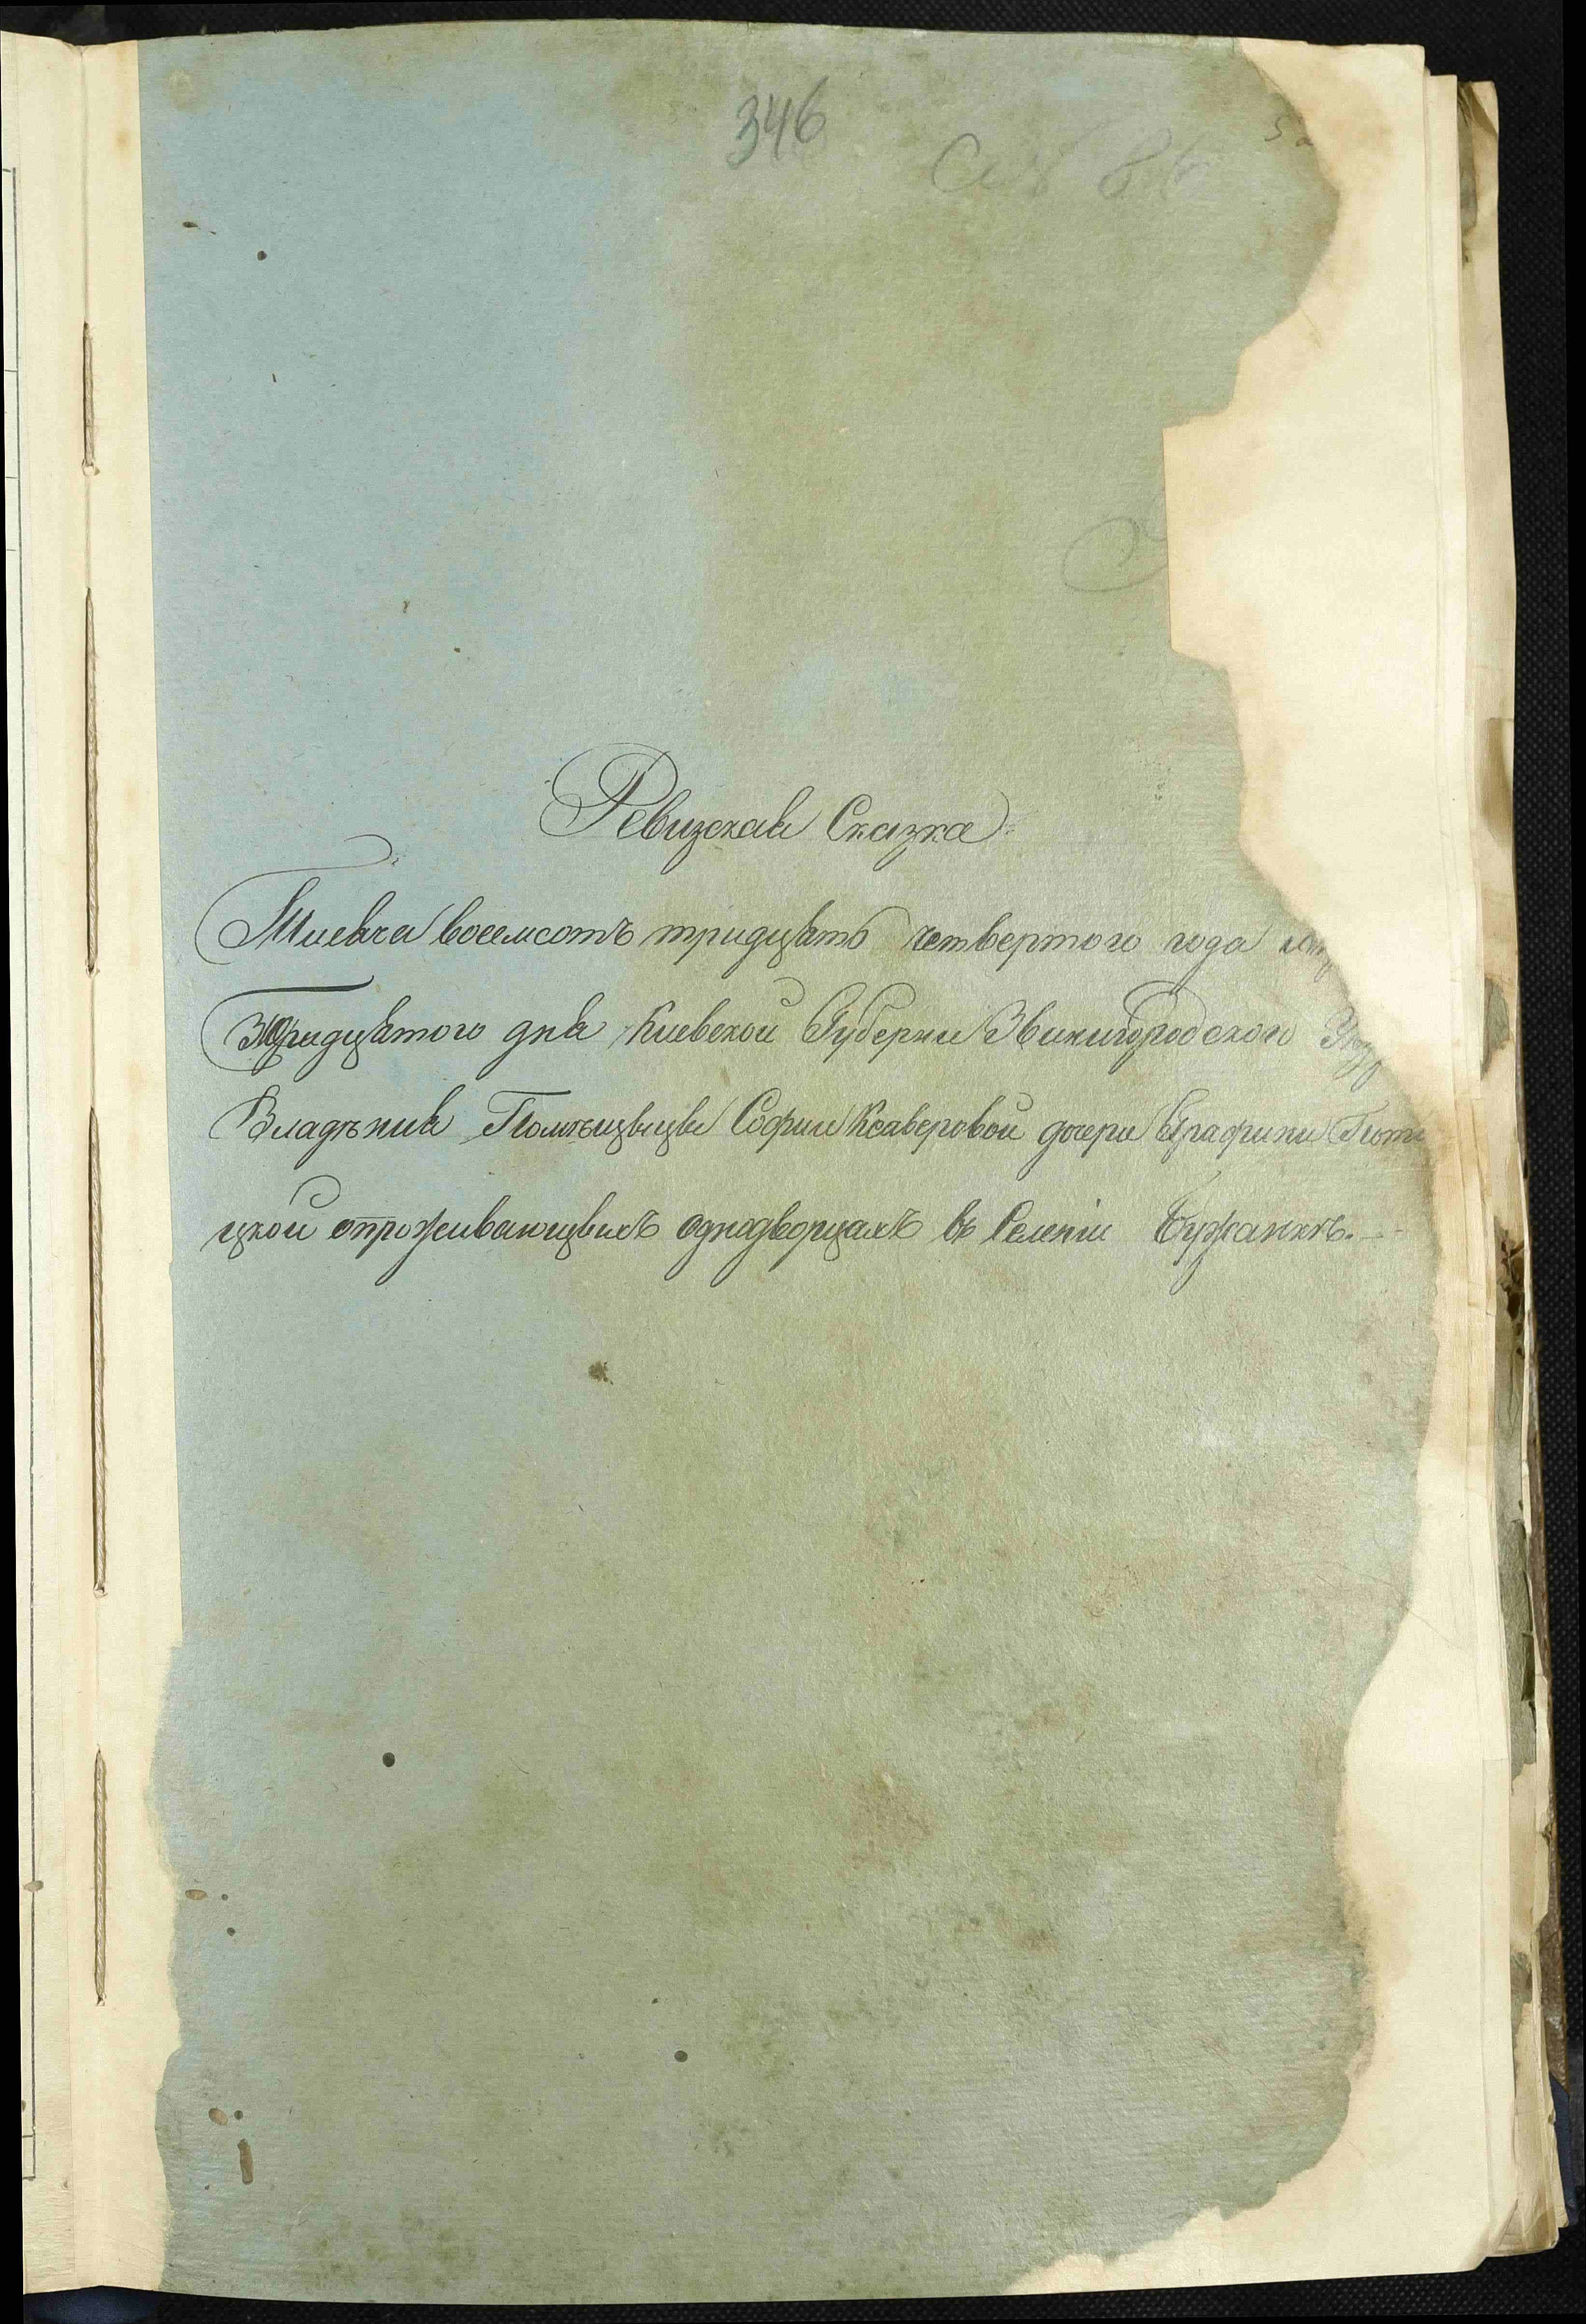 346
Ревизская Сказка
Тисяча восемсотъ тридцать четвертого года
Тридцятого дня Киевской Губернии Звинигородского
Владѣния Помѣщицы Софии Ксаверовой дочери Графини Пото
цкой опроживающихъ однодворцахъ въ Селении Бужанкѣ.